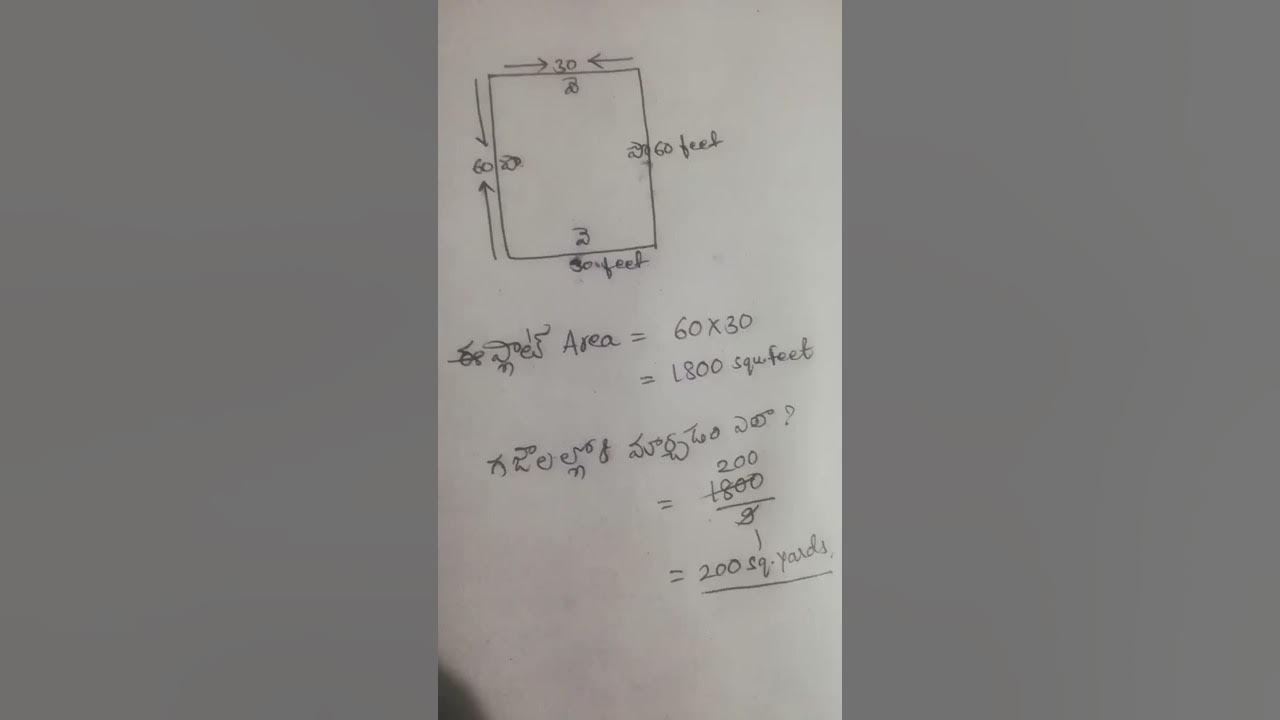 → 30 ←
వె
60 పొ
పొ 60 feet
వె
30 feet
ఈ ప్లాట్ Area = 60 X 30
= 1800 squ.feet
గజాలల్లోకి మార్చడం ఎలా ?
200
= 1800
9
1
= 200 sq.yards.